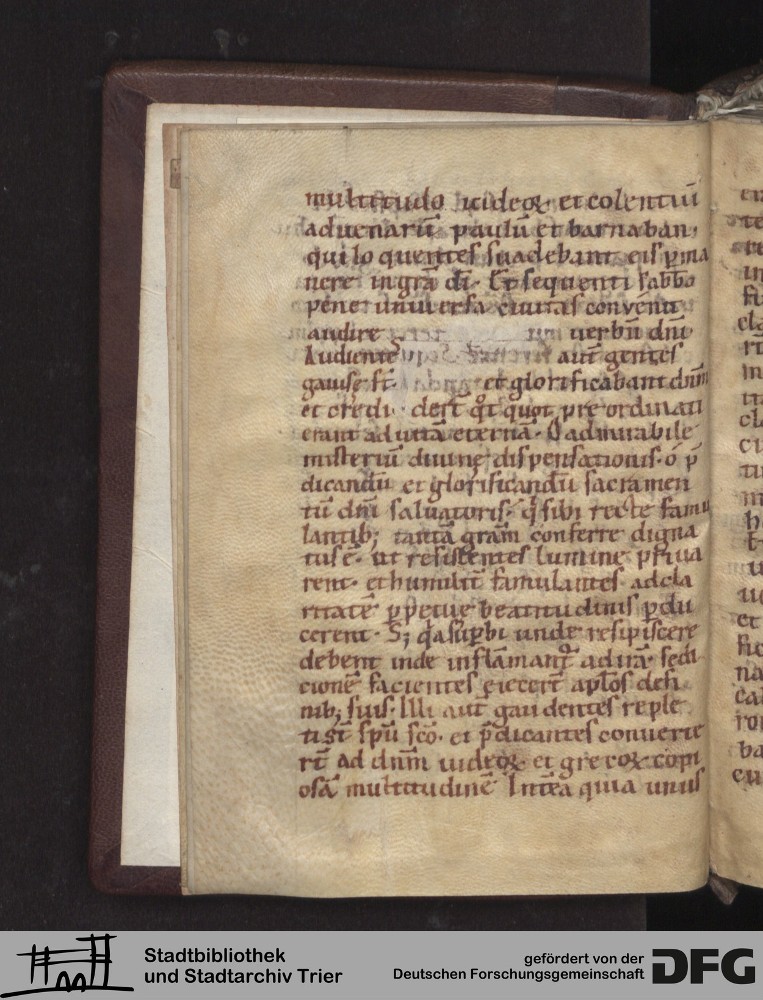 multitudo iudeoꝝ et colentiū
aduenarū paulū et barnaban.
qui lo quentes suadebant eis ꝑma
nere in grā dī. Et sequenti sabbo
pene uniuersa ciuitas conuenit
audire uerbū dn̄i
Audientes aut̄ gentes
gauise st̄ et glorificabant dnm̄
et credi der̄t qͦt quot pre ordinati
erant ad uitā eternā. O admirabile
misteriū diuine dispensationis. o p̄
dicandū et glorificandū sacramen
tū dn̄i saluatoris. q̄ sibi recte famu
lantibꝫ tantā grām conferre digna
tus ē. ut resistentes lumine priua
rent. et humilit̄ famulantes ad cla
ritatē ꝑpetue beatitudinis ꝑdu
cerent. Sꝫ qa suꝑbi unde resipiscere
debent inde inflāmant᷑ ad irā. sedi
cionē facientes eiecert̄ apl̄os de fi
nibꝫ suis. Illi aut̄ gaudentes reple
ti st̄ spū sco. et p̄dicantes conuerte
rt̄ ad dnm̄ iudeoꝝ et grecoꝝ copi
osā multitudinē Int̄ea quia unus
Stadtbibliothek
und Stadtarchiv Trier
gefördert von der
Deutschen Forschungsgemeinschaft
DFG